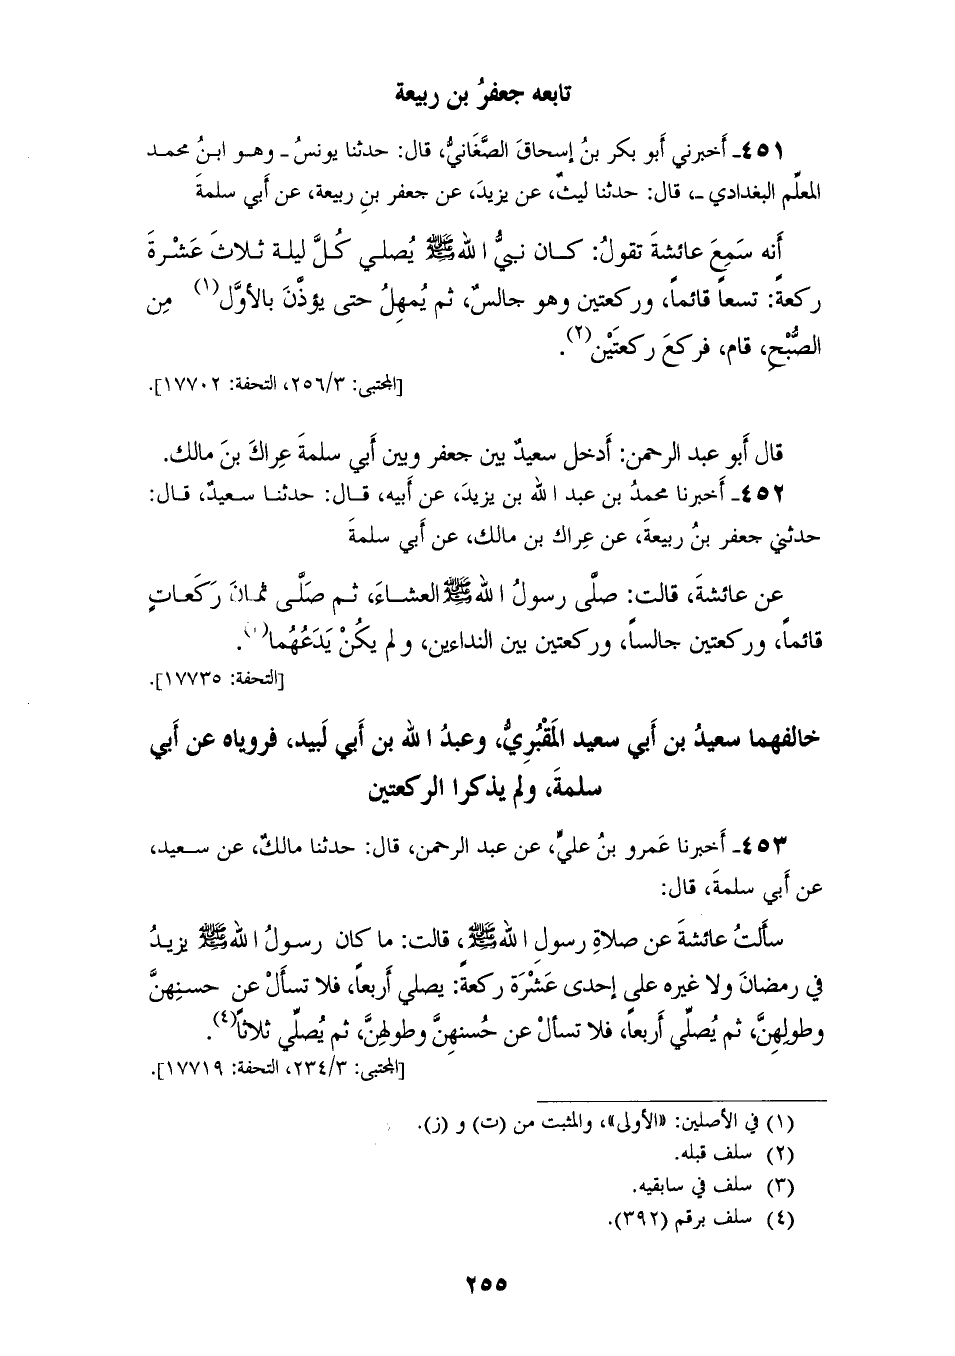 تابعه جعفرُ بن ربيعة
٤٥١ـ أَخبرني أَبو بكر بنُ إسحاقَ الصَّغَانيُّ، قال: حدثنا يونسُ ـ وهو ابنُ محمد
المعلّم البغدادي ـ، قال: حدثنا ليثٌ، عن يزيدَ، عن جعفر بنِ ربيعة، عن أَبي سلمةَ
أَنه سَمِعَ عائشةَ تقولُ: كان نبيُّ الله ﷺ يُصلي كُلَّ ليلة ثلاثَ عَشْرةَ
ركعةً: تسعاً قائماً، وركعتين وهو جالسٌ، ثم يُمهِلُ حتى يؤذَّنَ بالأوَّل(١) مِن
الصُّبْحِ، قام، فركعَ ركعتَيْن(٢).
[المجتبى: ٢٥٦/٣، التحفة: ١٧٧٠٢].
قال أَبو عبد الرحمن: أَدخل سعيدٌ بين جعفر وبين أَبي سلمةَ عِراكَ بنَ مالك.
٤٥٢ـ أَخبرنا محمدُ بن عبد الله بن يزيدَ، عن أَبيه، قال: حدثنا سعيدٌ، قال:
حدثني جعفر بنُ ربيعةَ، عن عِراك بن مالك، عن أَبي سلمةَ
عن عائشةَ، قالت: صلَّى رسولُ الله ﷺ العشاءَ، ثم صَلَّى ثمانَ رَكَعاتٍ
قائماً، وركعتين جالساً، وركعتين بين النداءين، ولم يكُنْ يَدَعُهُما.
[التحفة: ١٧٧٣٥].
خالفهما سعيدُ بن أَبي سعيد المَقْبُرِيُّ، وعبدُ الله بن أَبي لَبيد، فروياه عن أَبي
سلمةَ، ولم يذكرا الركعتين
٤٥٣ـ أَخبرنا عَمرو بنُ عليٍّ، عن عبد الرحمن، قال: حدثنا مالكٌ، عن سعيد،
عن أَبي سلمةَ، قال:
سأَلتُ عائشةَ عن صلاةِ رسولِ الله ﷺ، قالت: ما كان رسولُ الله ﷺ يزيدُ
في رمضانَ ولا غيره على إحدى عَشْرَة ركعةً: يصلي أَربعاً، فلا تسأَلْ عن حسنِهنَّ
وطولِهنَّ، ثم يُصلِّي أَربعاً، فلا تسأَلْ عن حُسنِهنَّ وطولهِنَّ، ثم يُصلِّي ثلاثاً(٤).
[المجتبى: ٢٣٤/٣، التحفة: ١٧٧١٩].
(١) في الأصلين: «الأولى»، والمثبت من (ت) و (ز).
(٢) سلف قبله.
(٣) سلف في سابقيه.
(٤) سلف برقم (٣٩٢).
٢٥٥